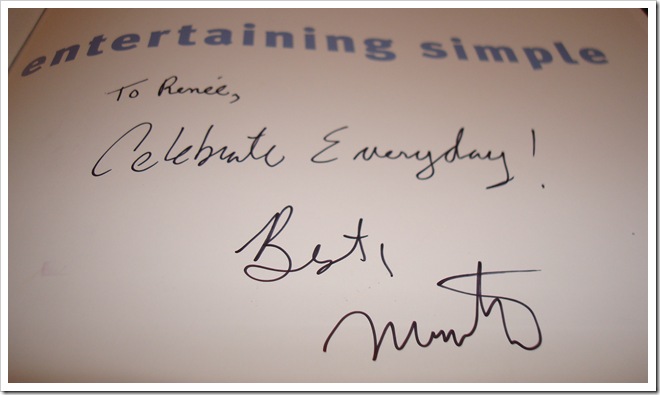 entertaining simple
To Renée,
Celebrate Everyday!
Best,